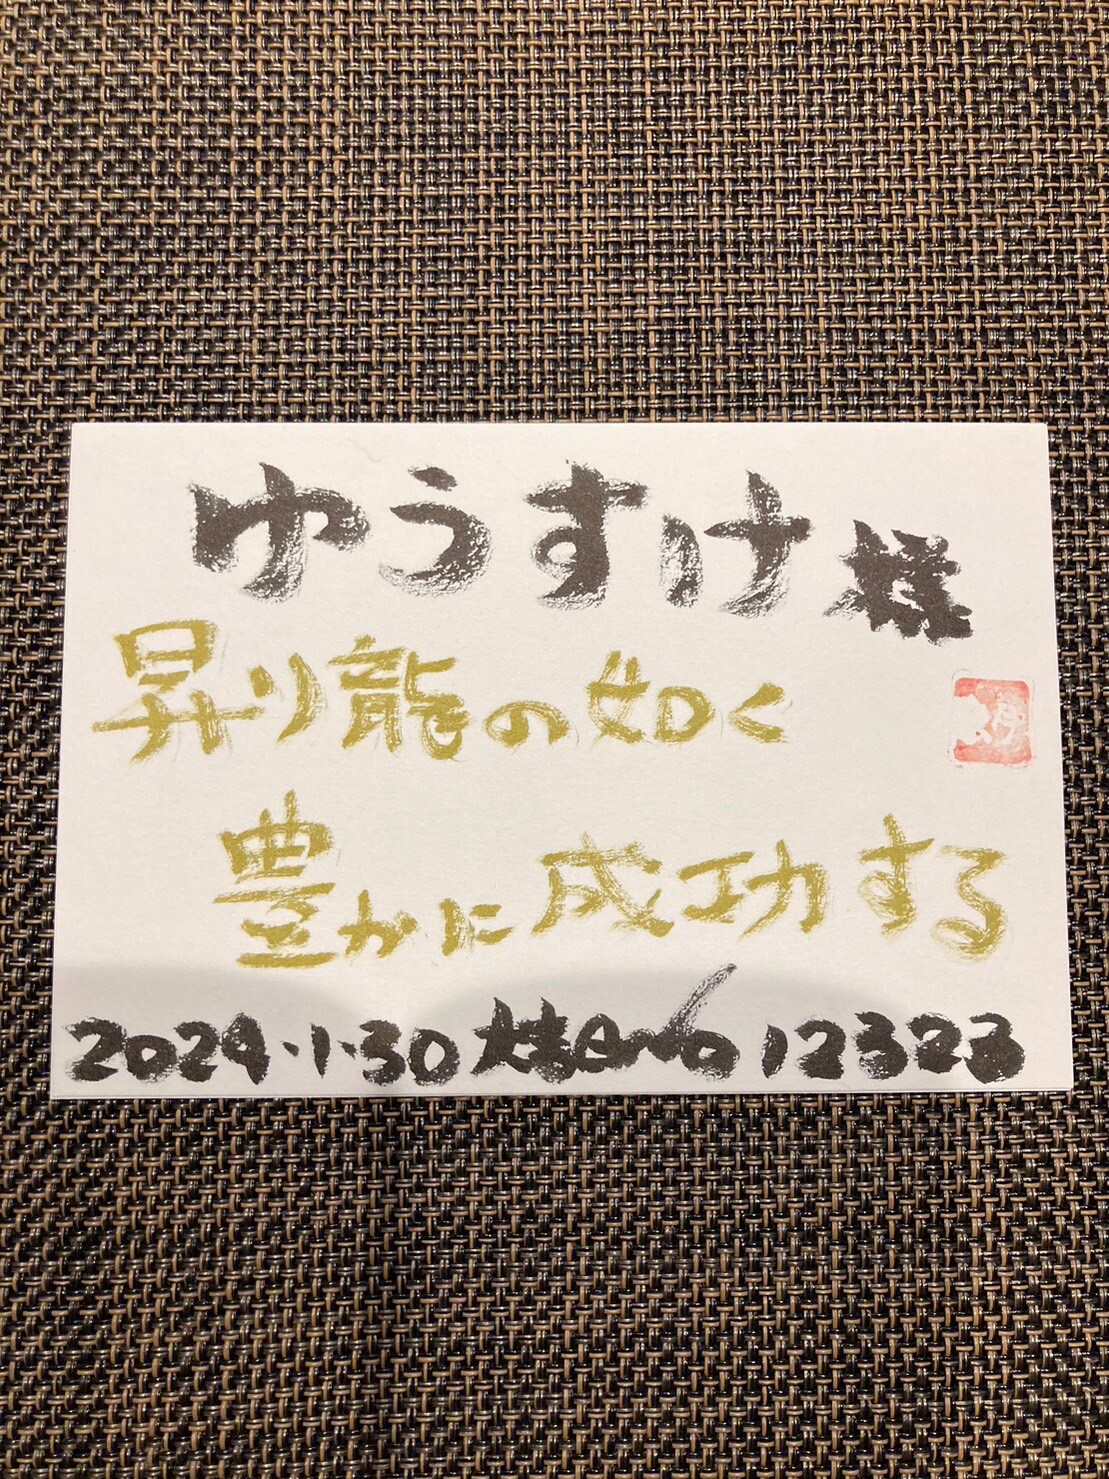 ゆうすけ様
昇り龍の如く
豊かに成功する
2024.1.30 大吉日 No 12323